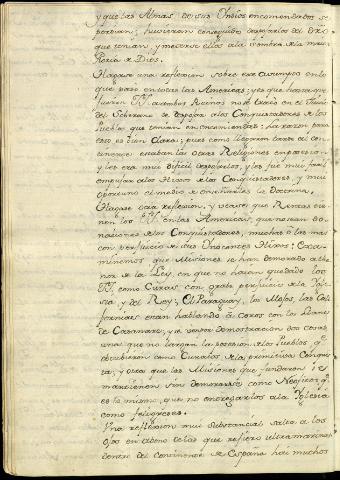 y que las Almas de sus Indios encomendados se
perdian; huvieron conseguido despojarlos del
que tenian, y meterse ellos a la sombra de la
Gloria a Dios.
Hagase una reflexion sobre este assumpto en lo
que paso en todas las Americas; y es que hasta que
fueron
del Soberano de despojar a los Conquistadores de los
Pueblos que tenian en encomiendas: la razon para
esto es bien Clara; pues como llegaron tarde al con-
tinente estaban las otras Religiones en posesion
y les era mui dificil despojarlos, y les fue mui facil
empujar a los Hijos de los Conquistadores, y mui
oportuno el medio de enseñarles la Doctrina.
Hagase otra reflexion, y vease, que Rentas tie-
nen los PP. en las Americas, que no sean do-
naciones de los Conquistadores, muchas o las mas
con perjuicio de sus Inocentes Hixos: Exsa-
minemos que Missiones se han demorado a the-
nor de la Ley, en que no haian quedado los
PP. como Curas con grave perjuicio de la Igle-
sia, y del Rey; El Paraguay, los Moxos, las Cali-
fornias estan hablando a coros con los Llanos
de Casanare, y se veran demostracion dos cosas,
unas que no largan la posesion de los Pueblos q.e
obtubieron como Curatos de la primitiva Conquis-
ta, y otras que las Missiones que fundaron se
mantienen sin demorarse como Neofitos, q.e
es lo mismo, que no entregarlos a la Iglesia
como feligreses.
Una reflexion mui substancial salta a los
ojos en abono de las que refiero ultramarinas
dentro del continente de España hai muchos